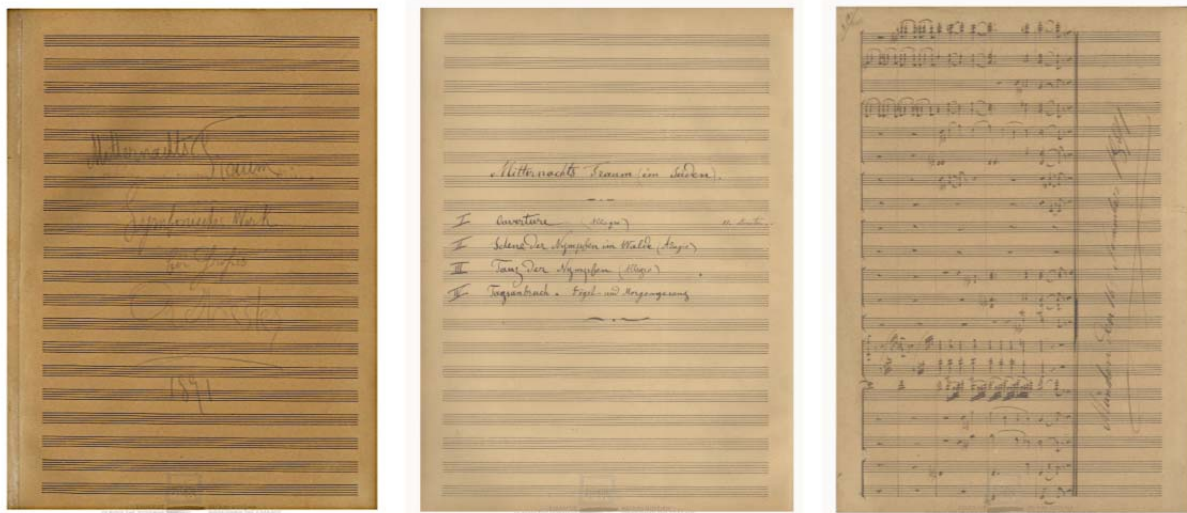 Mitternachts Traum
Symphonisches Werk
von
1891
Mitternachts Traum (im Süden).
I Ouverture (Allegro) 
II Scene der Nymphen im Walde (Adagio)
III Tanz der Nymphen (Allegro)
IV Tagesanbruch. Vogel- und Morgengesang
München den 16. 1891